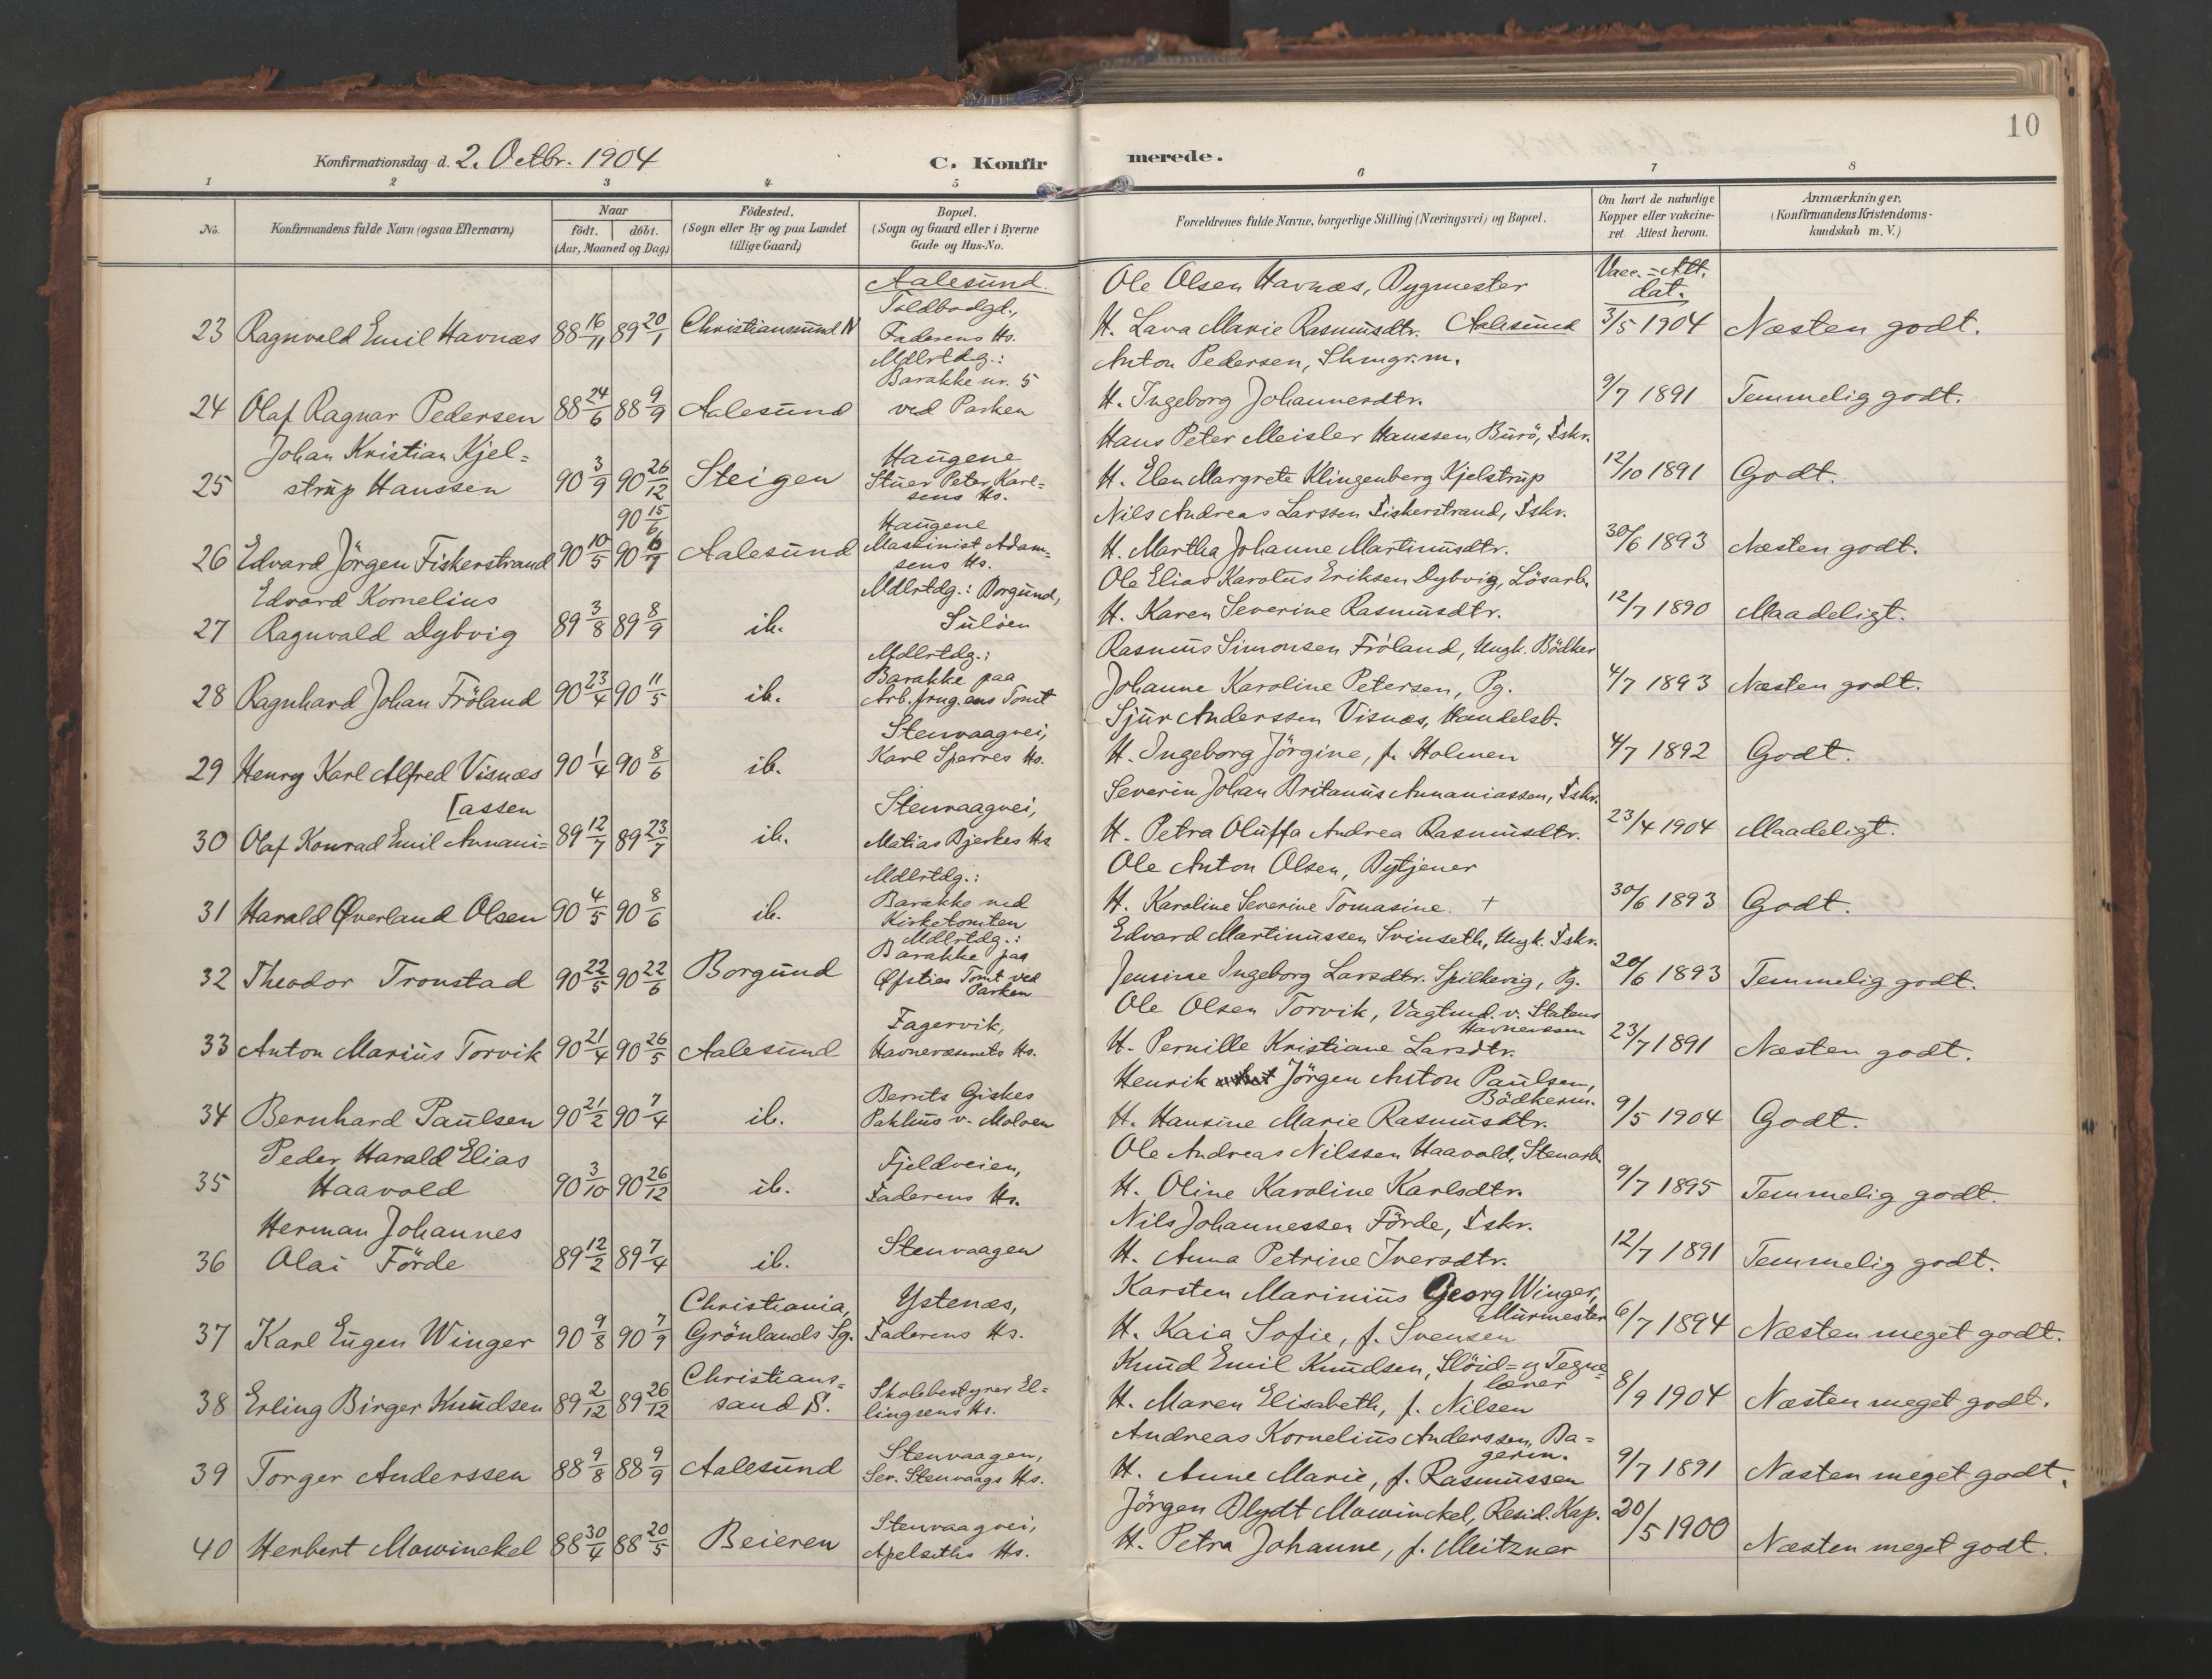 10
Konfirmationsdag d. 2. Octbr. 1904
C. Konfirmerede.
1 2 3 4 5 6 7 8
No. Konfirmandens fulde Navn (ogsaa Efternavn) Naar Födested. Bopæl. Forældrenes fulde Navne, borgerlige Stilling (Næringsvei) og Bopæl. Om havt de naturlige Anmærkninger,
födt. döbt. (Sogn eller By og paa Landet (Sogn og Gaard eller i Byerne Kopper eller vakcine- (Konfirmandens Kristendoms-
(Aar, Maaned og Dag) tillige Gaard) Gade og Hus-No. ret. Attest herom. kundskab m. V.)
Aalesund. Ole Olsen Havnæs, Bygmester Vacc.-Att.
Toldbodgt., dat.
23 Ragnvald Emil Havnæs 88 16/11 89 20/1 Christianssund N Faderens Hs. H. Lava Marie Rasmusdtr. Aalesund 3/5 1904 Næsten godt.
Mdlrtdg.: Anton Pedersen, Skmgr.m.
Barakke nr. 5
24 Olaf Ragnar Pedersen 88 24/6 88 9/9 Aalesund ved Parken H. Ingeborg Johannesdtr. 9/7 1891 Temmelig godt.
Johan Kristian Kjel= Haugene Hans Peter Meisler Hanssen, Burö, Fskr.
25 strup Hanssen 90 3/9 90 26/12 Steigen Stuer Peter Karl= H. Elen Margrete Klingenberg Kjelstrup 12/10 1891 Godt.
sens Hs.
90 15/6 Haugene Nils Andreas Larssen Fiskerstrand, Fskr.
26 Edvard Jörgen Fiskerstrand 90 10/5 90 6/7 Aalesund Maskinist Adam= H. Martha Johanne Martinusdtr. 30/6 1893 Næsten godt.
sens Hs.
Edvard Kornelius Mdlrtdg.: Borgund, Ole Elias Karolus Eriksen Dybvig, Lösarb.
27 Ragnvald Dybvig 89 3/8 89 8/9 ib. Sulöen H. Karen Severine Rasmusdtr. 12/7 1890 Maadeligt.
Mdlrtdg.: Rasmus Simonsen Fröland, Ungk. Bödker
Barakke paa
28 Ragnhard Johan Fröland 90 23/4 90 11/5 ib. Arb.frug.ens Tomt Johanne Karoline Petersen, Pg. 4/7 1893 Næsten godt.
Stenvaagvei, Sjur Anderssen Visnæs, Handelsb.
29 Henry Karl Alfred Visnæs 90 1/4 90 8/6 ib. Karl Sperres Hs. H. Ingeborg Jörgine, f. Holmen 4/7 1892 Godt.
[assen Stenvaagvei, Severin Johan Britanus Annaniassen, Fskr.
30 Olaf Konrad Emil Annani= 89 12/7 89 23/7 ib. Matias Bjerkes Hs. H. Petra Oluffa Andrea Rasmusdtr. 23/4 1904 Maadeligt.
Mdlrtdg.: Ole Anton Olsen, Bytjener
31 Harald Överland Olsen 90 4/5 90 8/6 ib. Barakke ved H. Karoline Severine Tomasine. + 30/6 1893 Godt.
Kirketomten
Mdlrtdg.: Edvard Martinussen Svinseth, Ungk. Fskr.
Barakke paa
32 Theodor Tronstad 90 22/5 90 22/6 Borgund Öfsties Tomt ved Jensine Ingeborg Larsdtr. Spilkevig, Pg. 20/6 1893 Temmelig godt.
Parken
Fagervik, Ole Olsen Torvik, Vagtmd. v. Statens
Havnevæsen
33 Anton Marius Torvik 90 21/4 90 26/5 Aalesund Havnevæsnets Hs. H. Pernille Kristiane Larsdtr. 23/7 1891 Næsten godt.
Bernts Giskes Henrik Jörgen Anton Paulsen,
Bödkerm.
34 Bernhard Paulsen 90 21/2 90 7/4 ib. Pakhus v. Molven H. Hansine Marie Rasmusdtr. 9/5 1904 Godt.
Peder Harald Elias Fjeldveien, Ole Andreas Nilssen Haavold, Stenarb.
35 Haavold 90 3/10 90 26/12 ib. Faderens Hs. H. Oline Karoline Karlsdtr. 9/7 1895 Temmelig godt.
Herman Johannes Nils Johannessen Förde, Fskr.
36 Olai Förde 89 12/2 89 7/4 ib. Stenvaagen H. Anna Petrine Iversdtr. 12/7 1891 Temmelig godt.
Christiania, Ystenæs, Karsten Marinius Georg Winger,
Murmester
37 Karl Eugen Winger 90 9/8 90 7/9 Grönlands Sg. Faderens Hs. H. Kaia Sofie, f. Svensen 6/7 1894 Næsten meget godt.
Christians= Skolebestyrer El= Knud Emil Knudsen, Slöid= og Tegne
lærer
38 Erling Birger Knudsen 89 2/12 89 26/12 sand S. lingsens Hs. H. Maren Elisabeth, f. Nilsen 8/9 1904 Næsten meget godt.
Stenvaagen, Andreas Kornelius Anderssen, Ba=
germ.
39 Torger Anderssen 88 9/8 88 9/9 Aalesund Sev. Stenvaags Hs. H. Anne Marie, f. Rasmussen 9/7 1891 Næsten meget godt.
Stenvaagvei, Jörgen Blydt Mowinckel, Resid. Kap.
40 Herbert Mowinckel 88 30/4 88 20/5 Beieren Apelseths Hs. H. Petra Johanne, f. Meitzner 20/5 1900 Næsten meget godt.